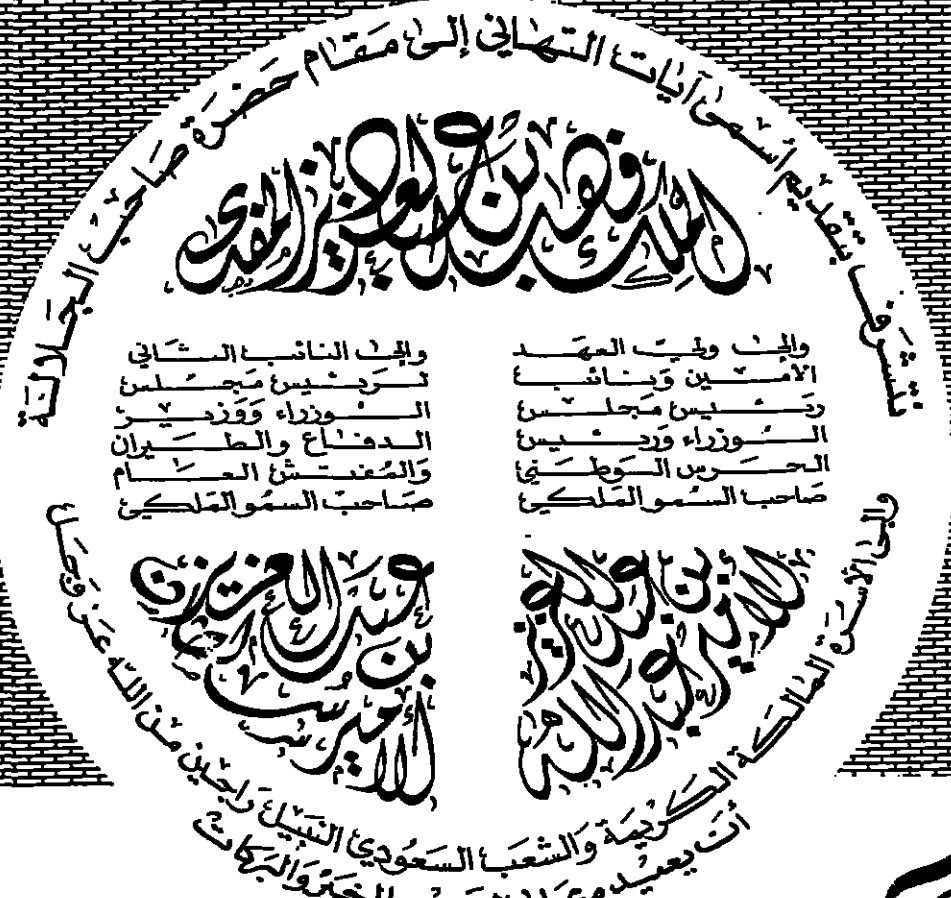 نتشرف بتقديم أسمى آيات التهاني إلى مقام حضرة صاحب الجلالة
الملك فهد بن عبد العزيز المفدى
وإلى ولي العهد
الأمين ونائب
رئيس مجلس
الوزراء ورئيس
الحرس الوطني
صاحب السمو الملكي
الأمير عبد الله
بن عبد العزيز
وإلى النائب الثاني
لرئيس مجلس
الوزراء ووزير
الدفاع والطيران
والمفتش العام
صاحب السمو الملكي
الأمير سلطان
بن عبد العزيز
وإلى الأسرة المالكة الكريمة والشعب السعودي النبيل راجين من الله عز وجل
أن يعيد الخير والبركات